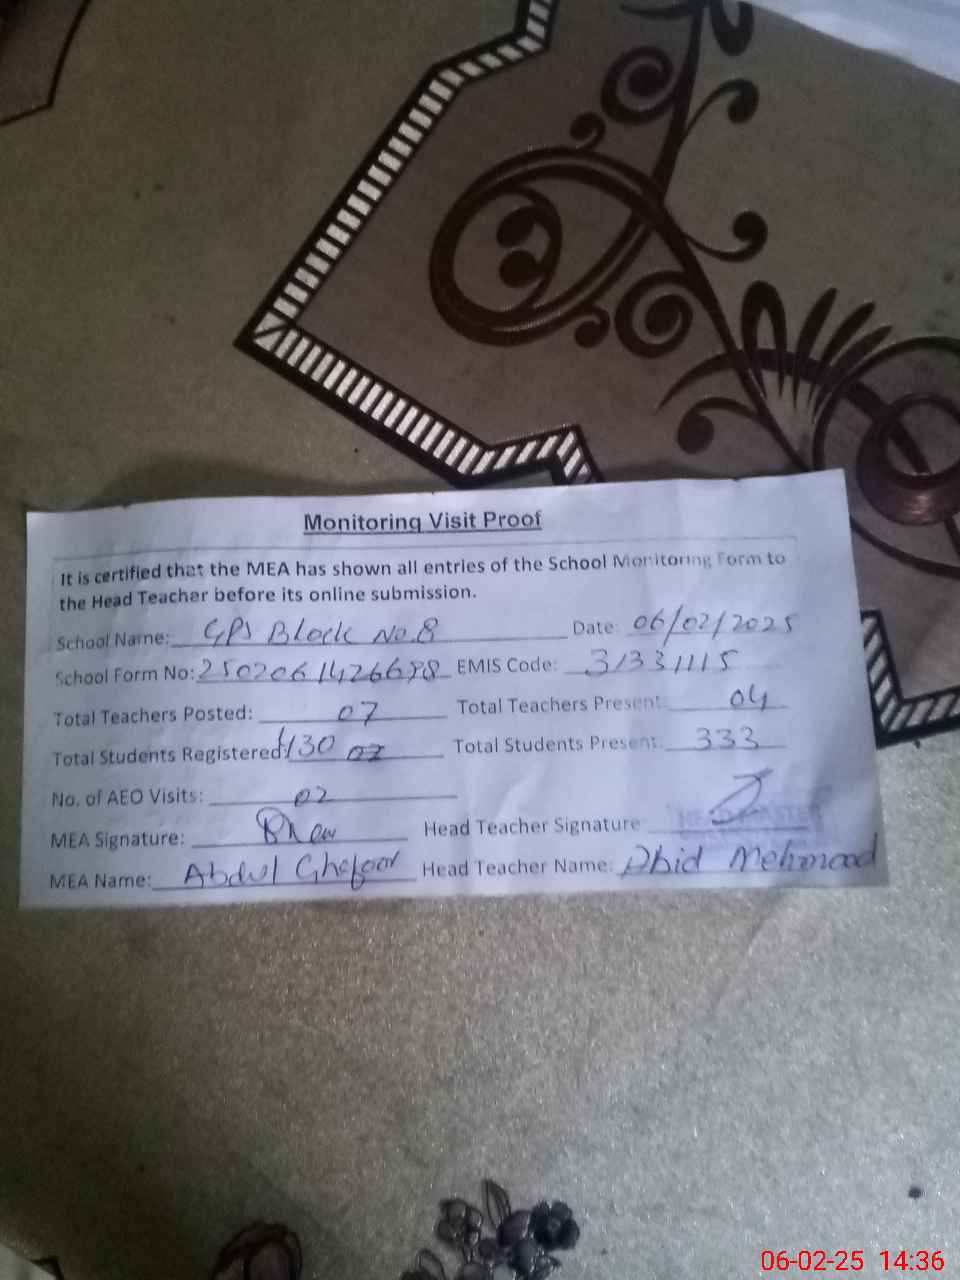 Monitoring Visit Proof
It is certified that the MEA has shown all entries of the School Monitoring Form to
the Head Teacher before its online submission.
School Name: GPS Block No.8 Date: 06/02/2025
School Form No: EMIS Code: 31331115
Total Teachers Posted: 07 Total Teachers Present: 04
Total Students Registered: 430 07 Total Students Present: 333
No. of AEO Visits: 02
MEA Signature: Head Teacher Signature
HEAD MASTER
MEA Name: Abdul Ghafoor Head Teacher Name: Abid Mehmood
06-02-25 14:36